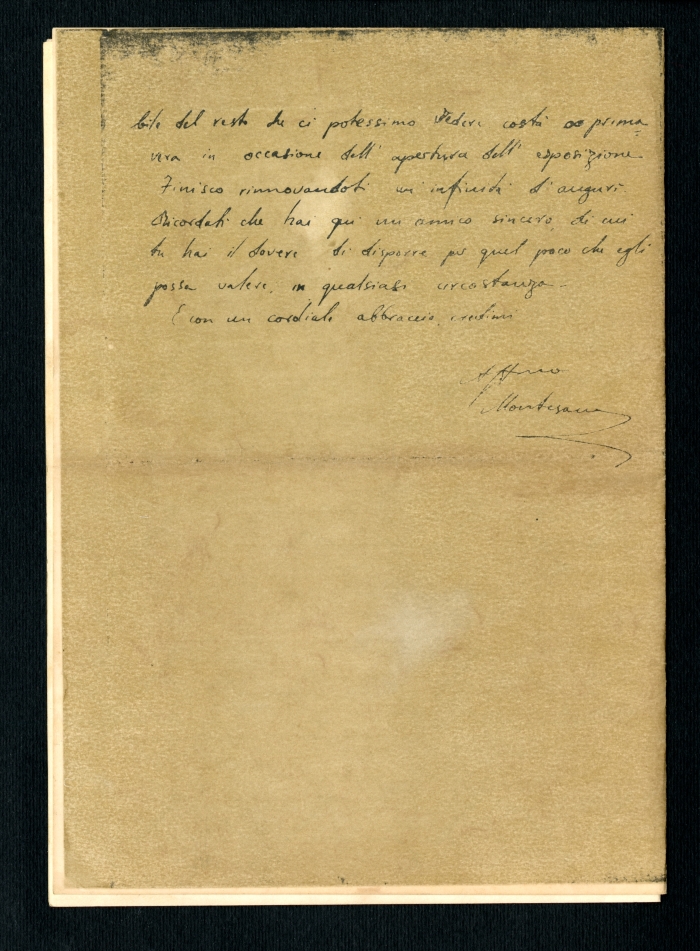 bile del resto che ci potessimo vedere costà a prima
vera in occasione dell' apertura dell' esposizione.
Finisco rinnovandoti un' infinità d' auguri
Ricordati che hai qui un amico sincero, di cui
tu hai il dovere di disporre per quel poco che egli
possa valere, in qualsiasi circostanza.
E con un cordiale abbraccio, credimi
Aff.mo
Montesano